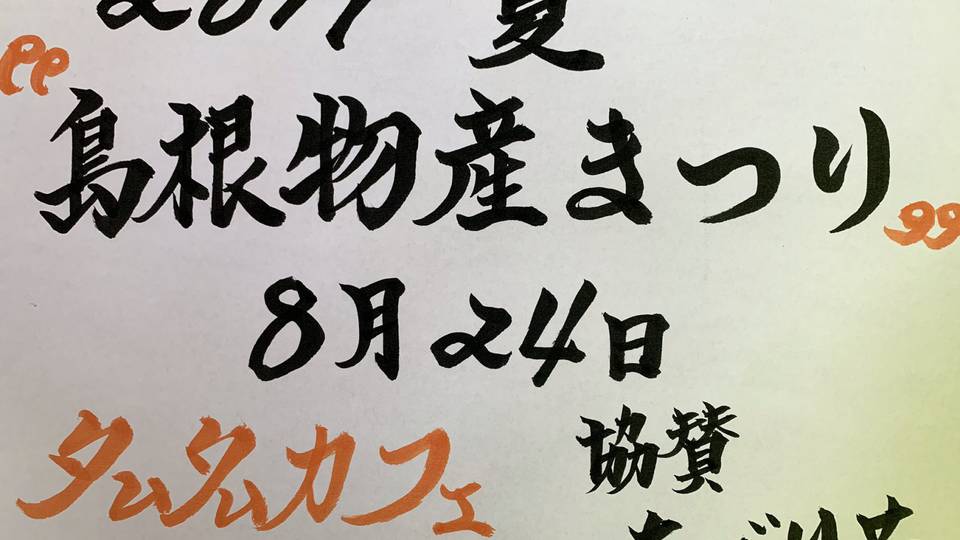 夏
“島根物産まつり”
8月24日
タムタムカフェ
協賛